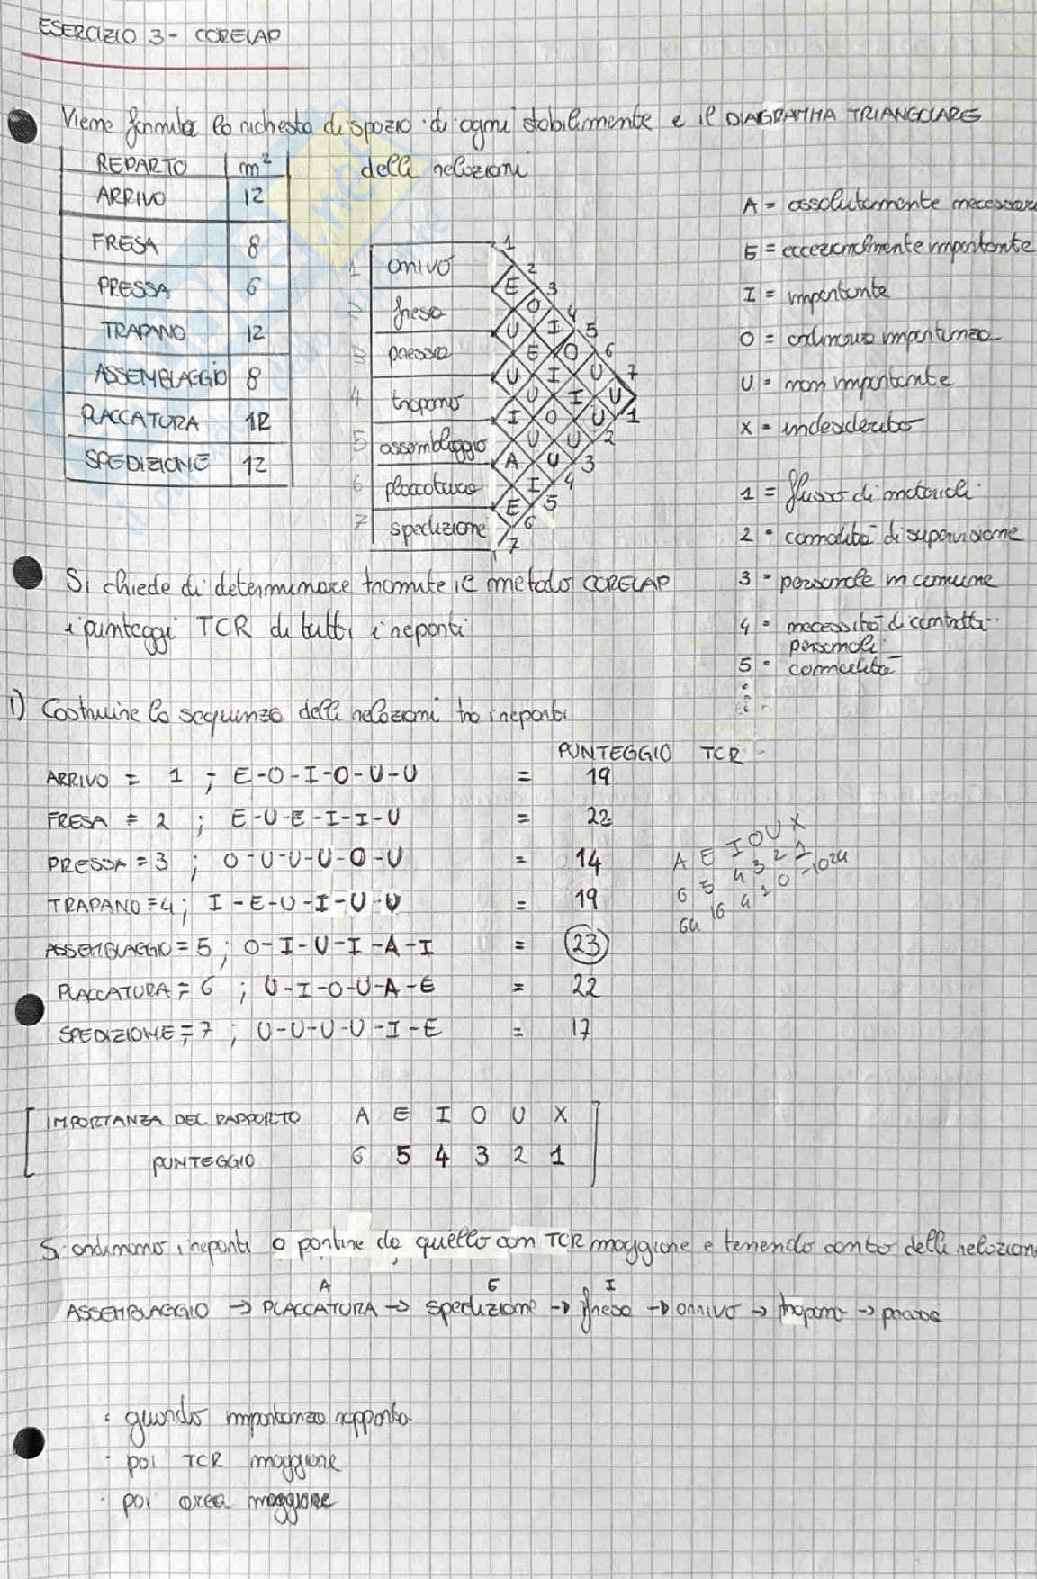 ESERCIZIO 3 - CORELAP
Viene fornita la richiesta di spazio di ogni stabilimente e il DIAGRAMMA TRIANGOLARE
delle relazioni
REPARTO m²
ARRIVO 12
FRESA 8
PRESSA 6
TRAPANO 12
ASSEMBLAGGIO 8
PLACCATURA 12
SPEDIZIONE 12
1 arrivo
2 fresa
3 pressa
4 trapano
5 assemblaggio
6 placcatura
7 spedizione
1 2 3 4 5 6 7
E O I O U U
U E I I U
U U O U
I U U
A I
E
1 2 3 4 5 6 7
A = assolutamente necessar
E = eccezionalmente importante
I = importante
O = ordinaria importanza
U = non importante
X = indesiderato
1 = flusso di materiali
2 = comodità di supervisione
3 = personale in comune
4 = necessità di contatti
personali
5 = comodità
Si chiede di determinare tramite il metodo CORELAP
i punteggi TCR di tutti i reparti
1) Costruire la sequenza delle relazioni tra i reparti
PUNTEGGIO TCR
ARRIVO = 1 ; E-O-I-O-U-U = 19
FRESA = 2 ; E-U-E-I-I-U = 22
PRESSA = 3 ; O-U-U-U-O-U = 14
TRAPANO = 4 ; I-E-U-I-U-U = 19
ASSEMBLAGGIO = 5 ; O-I-U-I-A-I = 23
PLACCATURA = 6 ; U-I-O-U-A-E = 22
SPEDIZIONE = 7 ; U-U-U-U-I-E = 17
A E I O U X
6 5 4 3 2 1
64 16 4 2 0 -1024
IMPORTANZA DEL RAPPORTO A E I O U X
PUNTEGGIO 6 5 4 3 2 1
Si ordinano i reparti a partire da quello con TCR maggiore e tenendo conto delle relazion
A E I
ASSEMBLAGGIO → PLACCATURA → spedizione → fresa → arrivo → trapano → pressa
importanza rapporto
· poi TCR maggiore
· poi area maggiore